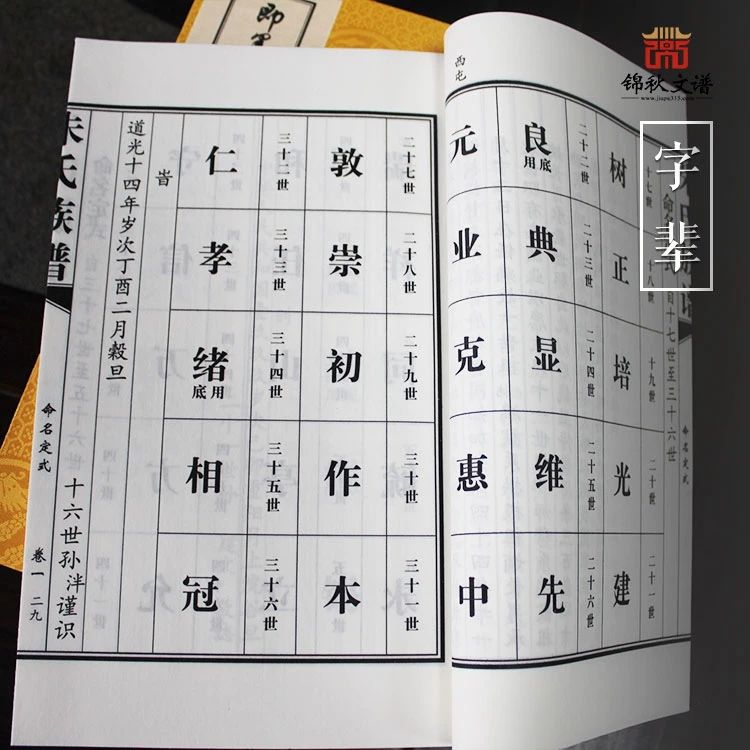 锦秋文谱
www.jiapu315.com
字辈
即墨
西屯
命名定式
十七世
树
十八世
正
十九世
培
二十世
光
二十一世
建
二十二世
良
底用
二十三世
典
二十四世
显
二十五世
维
二十六世
先
元
业
克
惠
中
二十七世
敦
二十八世
崇
二十九世
初
三十世
作
三十一世
本
三十二世
仁
三十三世
孝
三十四世
绪
用底
三十五世
相
三十六世
冠
旹
道光十四年岁次丁酉二月榖旦
十六世孙泮谨识
氏族谱
命名定式
卷一 二九